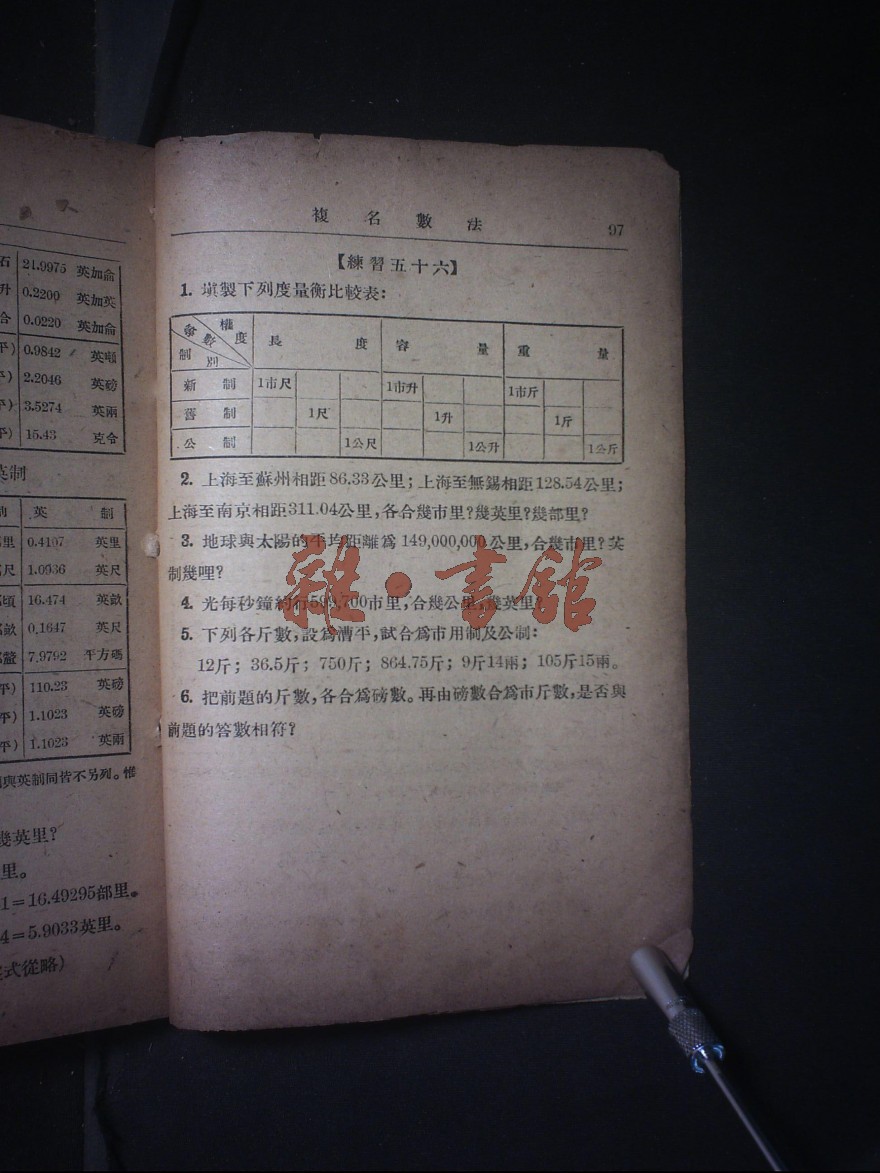 石 21.9975 英加侖
升 0.2200 英加英
合 0.0220 英加侖
平) 0.9842 英噸
平) 2.2046 英磅
平) 3.5274 英兩
平) 15.43 克令
英制
英 制
里 0.4107 英里
尺 1.0936 英尺
頃 16.474 英畝
畝 0.1647 英尺
釐 7.9792 平方碼
平) 110.23 英磅
平) 1.1023 英磅
平) 1.1023 英兩
與英制同皆不另列。惟
幾英里?
里。
1=16.49295部里。
4=5.9033英里。
式從略)
複名數法 97
【練習五十六】
1. 塡製下列度量衡比較表:
權度 數 制別 長度 容量 重量
新制 1市尺 1市升 1市斤
舊制 1尺 1升 1斤
公制 1公尺 1公升 1公斤
2. 上海至蘇州相距86.33公里;上海至無錫相距128.54公里;
上海至南京相距311.04公里,各合幾市里?幾英里?幾部里?
3. 地球與太陽的平均距離爲149,000,000公里,合幾市里?英
制幾哩?
4. 光每秒鐘約行 700市里,合幾公里,幾英里?
5. 下列各斤數,設爲漕平,試合爲市用制及公制:
12斤;36.5斤;750斤;864.75斤;9斤14兩;105斤15兩。
6. 把前題的斤數,各合爲磅數。再由磅數合爲市斤數,是否與
前題的答數相符?
雜·書館